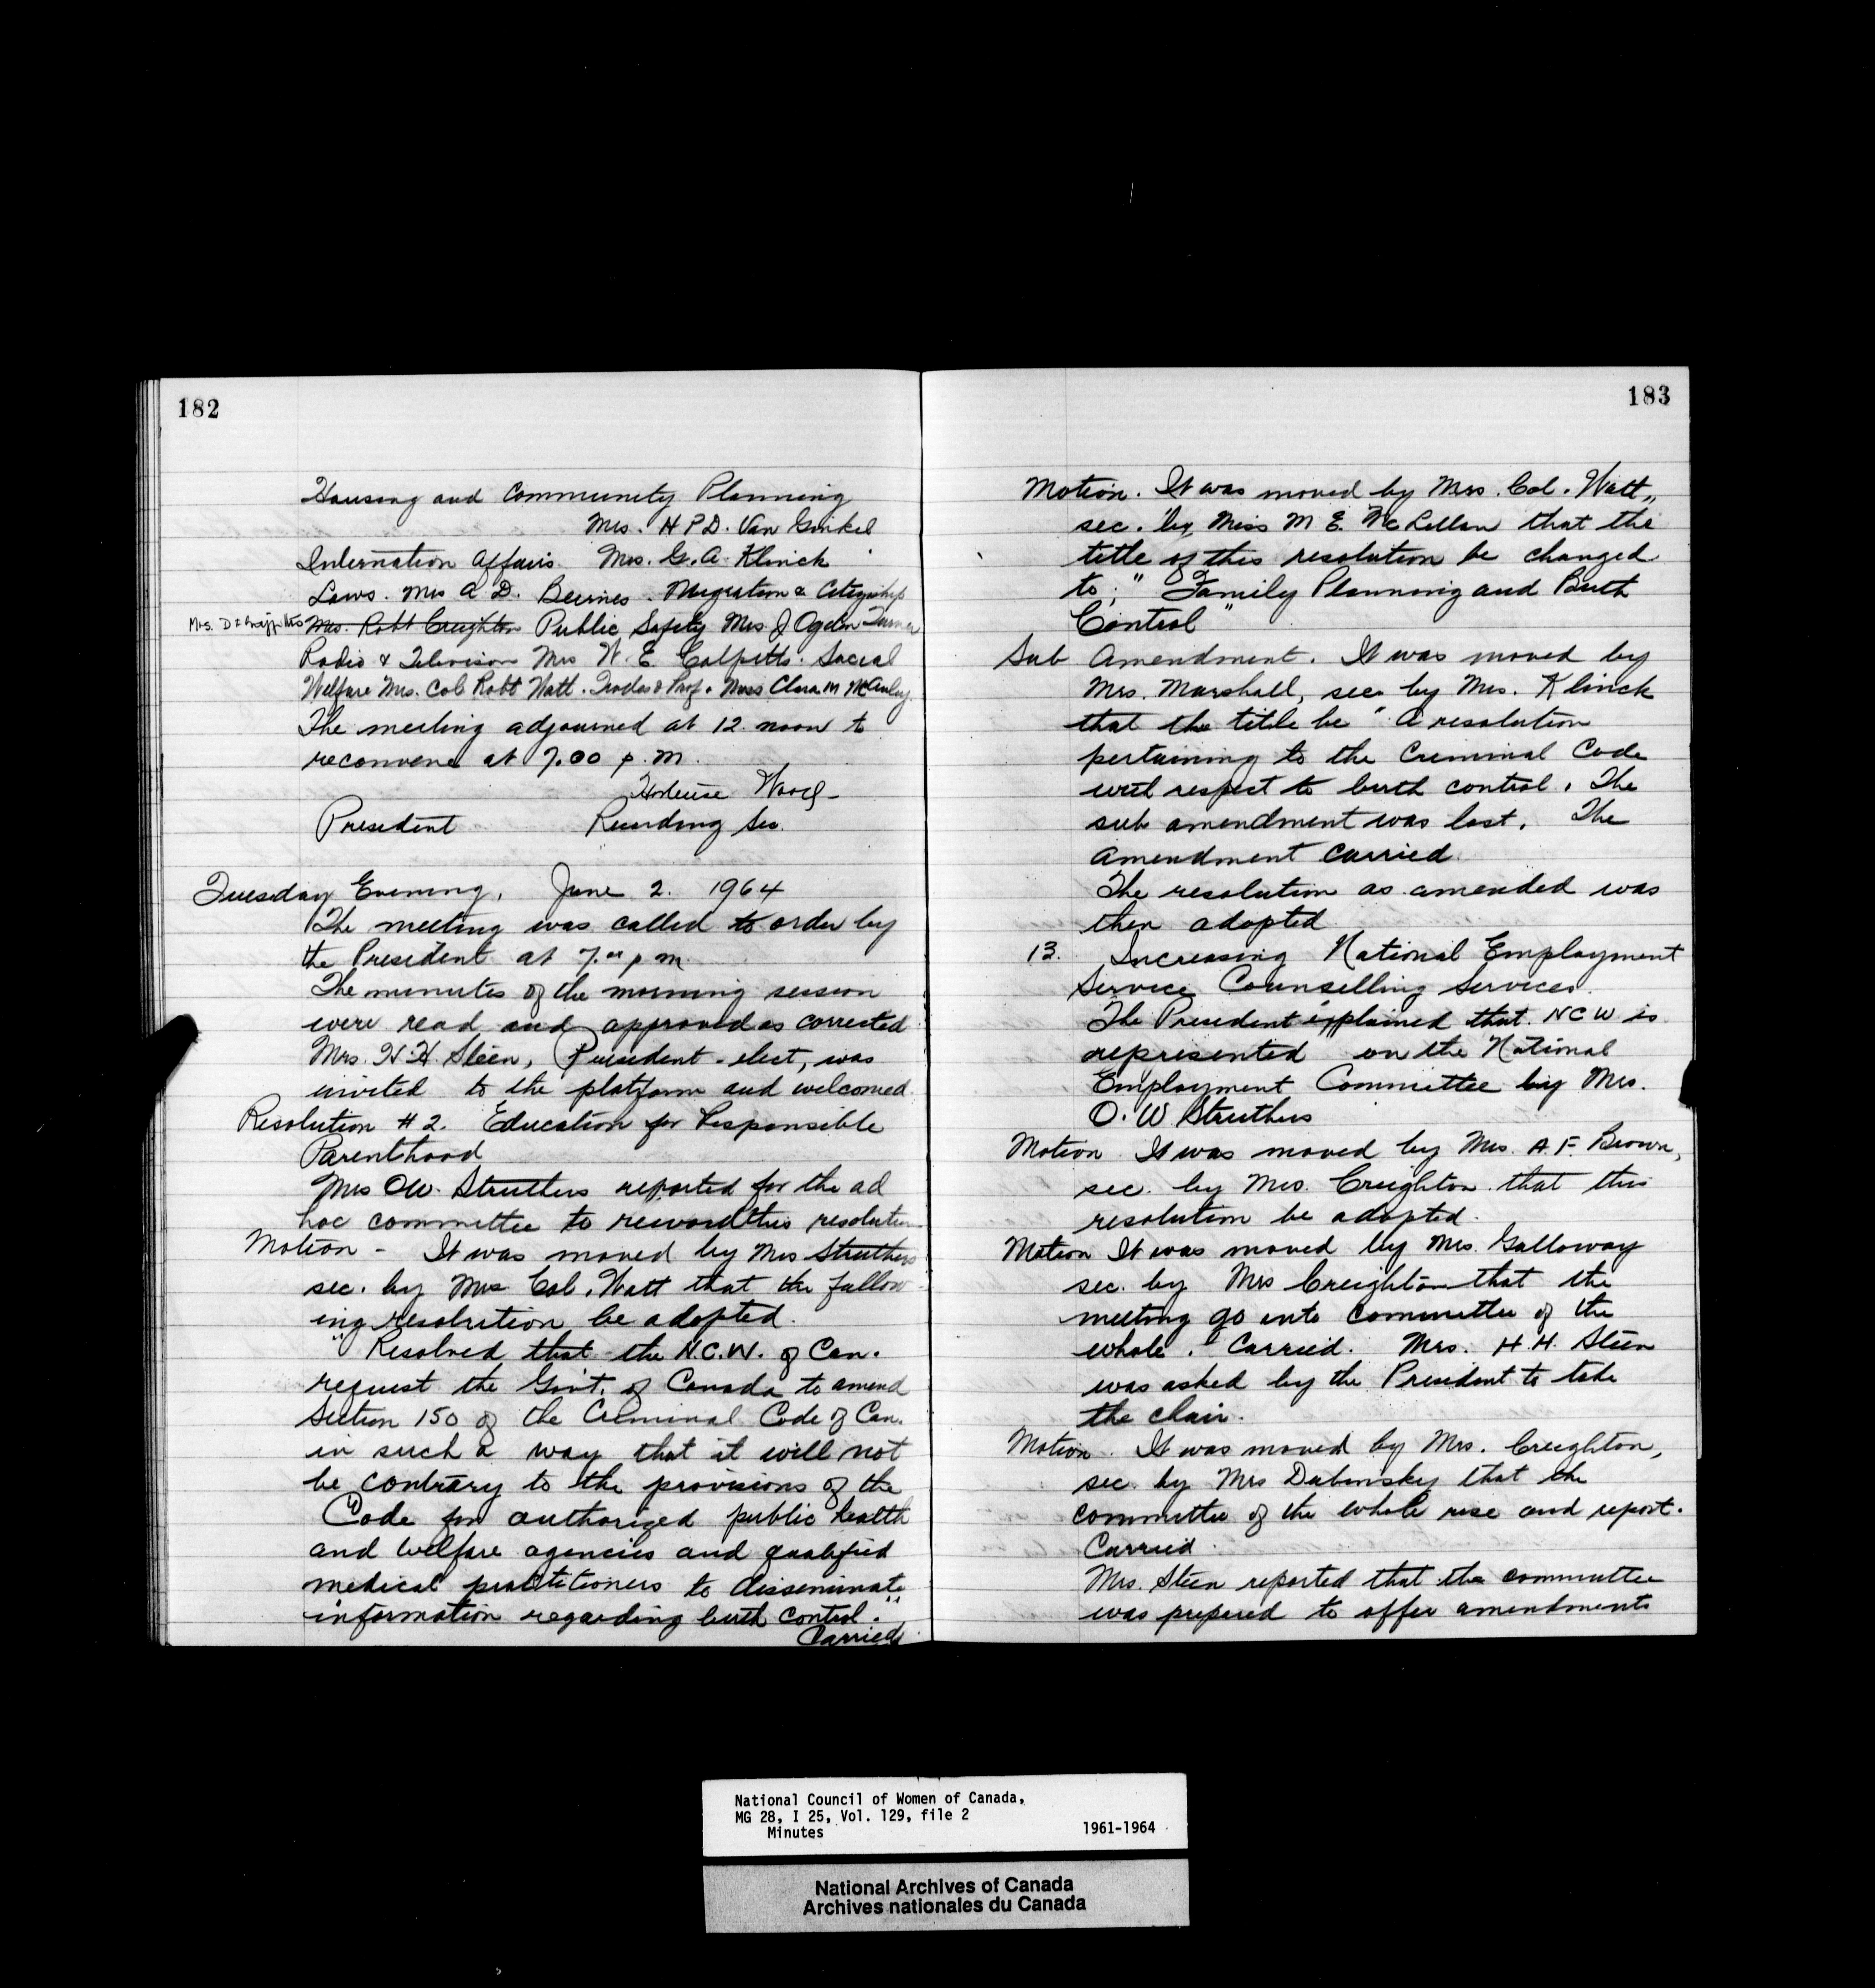 182
Housing and Community Planning
Mrs. H P D. Van Ginkel
Internation Affairs. Mrs. G. A. Klinck
Laws. Mrs A D. Beirnes. Migration & Citizenship
Mrs. Robt Creighton Public Safety Mrs. J Ogden Turner
Radio & Television Mrs W. E. Colpitts. Social
Welfare Mrs. Col Robt Watt. Trades & Prof. Miss Clara M McAuley.
The meeting adjourned at 12 noon to
reconvene at 7.00 p.m.
Hortense Wood
President Recording Sec.
Tuesday Evening, June 2. 1964
The meeting was called to order by
the President at 7.00 p m.
The minutes of the morning session
were read and approved as corrected
Mrs. H. H Steen, President-elect, was
invited to the platform and welcomed.
Resolution # 2. Education for Responsible
Parenthood
Mrs O W. Struthers reported for the ad
hoc committee to reword this resolution
Motion - It was moved by Mrs Struthers
sec. by Mrs Col. Watt that the follow-
ing resolution be adopted.
"Resolved that the N.C.W. of Can.
request the Gov't. of Canada to amend
Section 150 of the Criminal Code of Can.
in such a way that it will not
be contrary to the provisions of the
Code for authorized public health
and welfare agencies and qualified
medical practitioners to disseminate
information regarding birth control."
Carried.
183
Motion. It was moved by Mrs. Col. Watt,
sec. by Miss M. E. McLellan that the
title of this resolution be changed
to: "Family Planning and Birth
Control"
Sub Amendment. It was moved by
Mrs. Marshall, sec. by Mrs. Klinck
that the title be "A resolution
pertaining to the Criminal Code
with respect to birth control. The
sub amendment was lost. The
amendment carried.
The resolution as amended was
then adopted
13. Increasing National Employment
Service Counselling Services.
The President explained that NCW is
represented on the National
Employment Committee by Mrs.
O. W Struthers
Motion It was moved by Mrs. A. F. Brown,
sec. by Mrs. Creighton that this
resolution be adopted.
Motion It was moved by Mrs. Galloway
sec. by Mrs Creighton that the
meeting go into Committee of the
whole. Carried. Mrs. H. H. Steen
was asked by the President to take
the chair.
Motion. It was moved by Mrs. Creighton,
sec. by Mrs Dubinsky that the
committee of the whole rise and report.
Carried.
Mrs. Steen reported that the committee
was prepared to offer amendments
National Council of Women of Canada,
MG 28, I 25, Vol. 129, file 2
Minutes 1961-1964
National Archives of Canada
Archives nationales du Canada